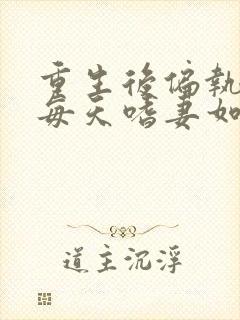 重生後偏執
每天嗜妻如
道主沉浮